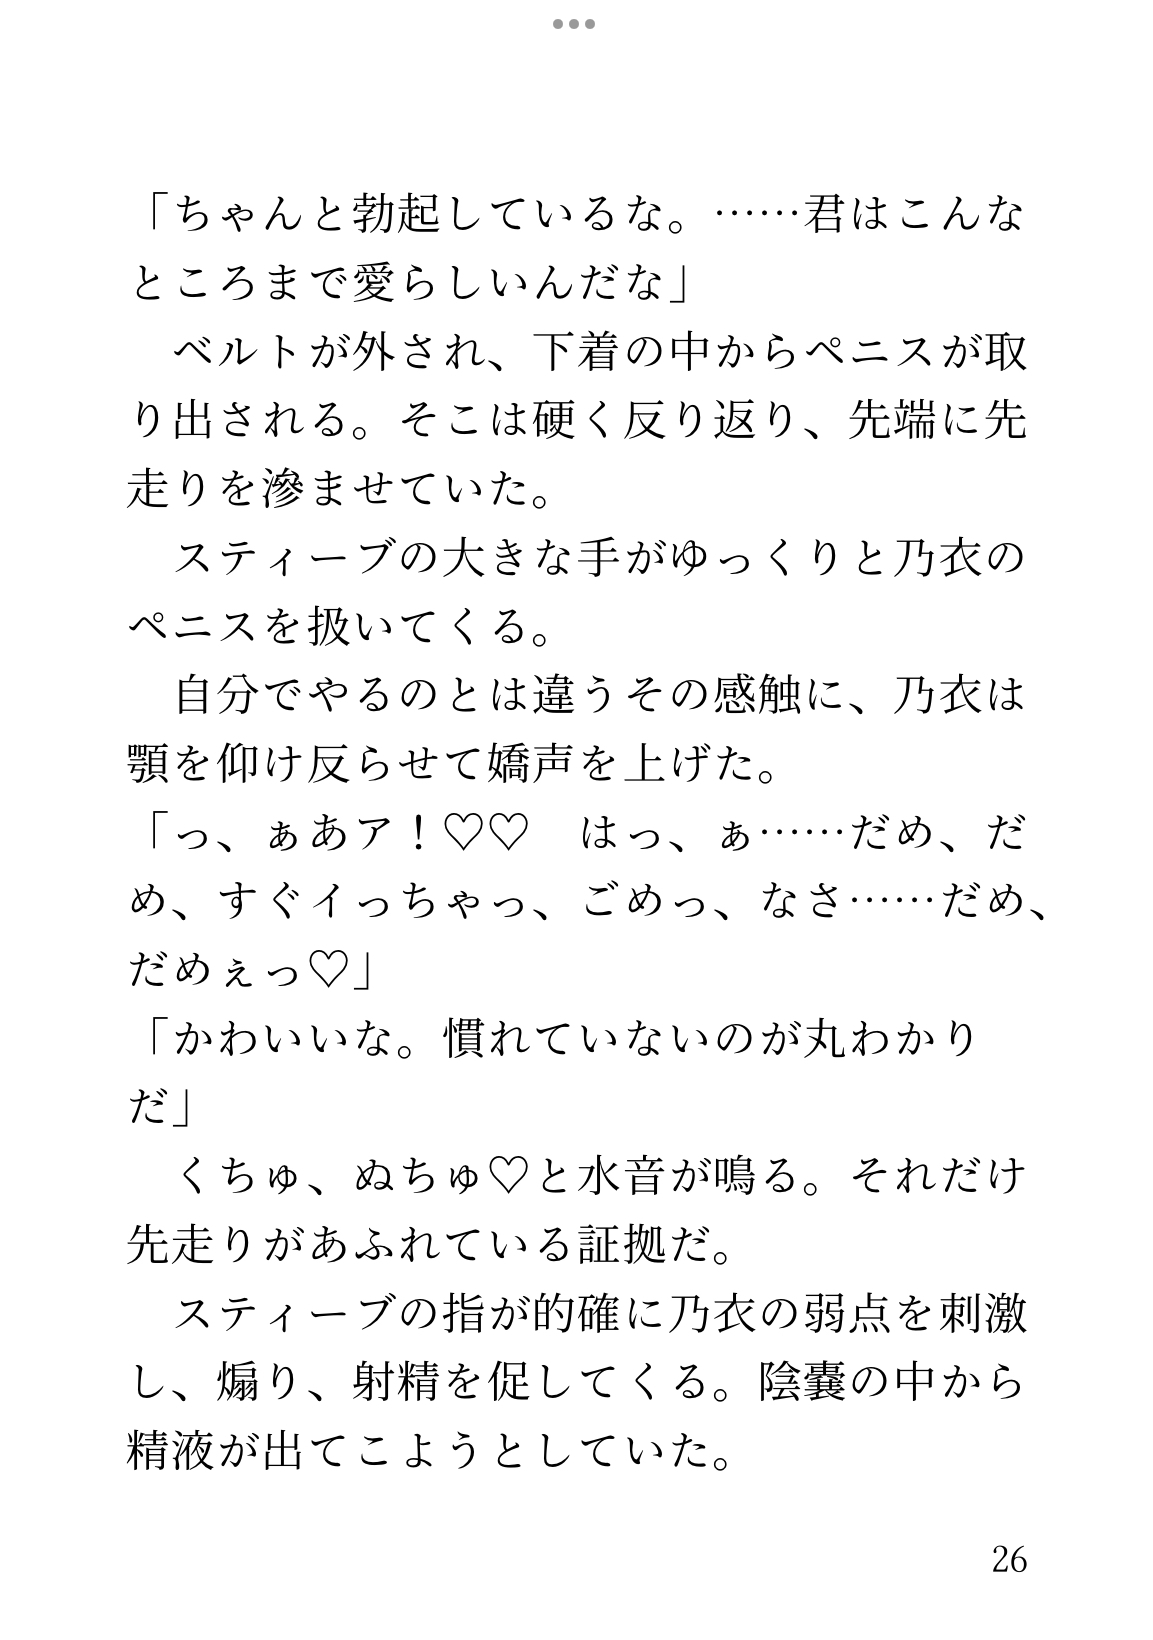 「ちゃんと勃起しているな。……君はこんな
ところまで愛らしいんだな」
　ベルトが外され、下着の中からペニスが取
り出される。そこは硬く反り返り、先端に先
走りを滲ませていた。
　スティーブの大きな手がゆっくりと乃衣の
ペニスを扱いてくる。
　自分でやるのとは違うその感触に、乃衣は
顎を仰け反らせて嬌声を上げた。
「っ、ぁあア！♡♡　はっ、ぁ……だめ、だ
め、すぐイっちゃっ、ごめっ、なさ……だめ、
だめぇっ♡」
「かわいいな。慣れていないのが丸わかり
だ」
　くちゅ、ぬちゅ♡と水音が鳴る。それだけ
先走りがあふれている証拠だ。
　スティーブの指が的確に乃衣の弱点を刺激
し、煽り、射精を促してくる。陰嚢の中から
精液が出てこようとしていた。
26